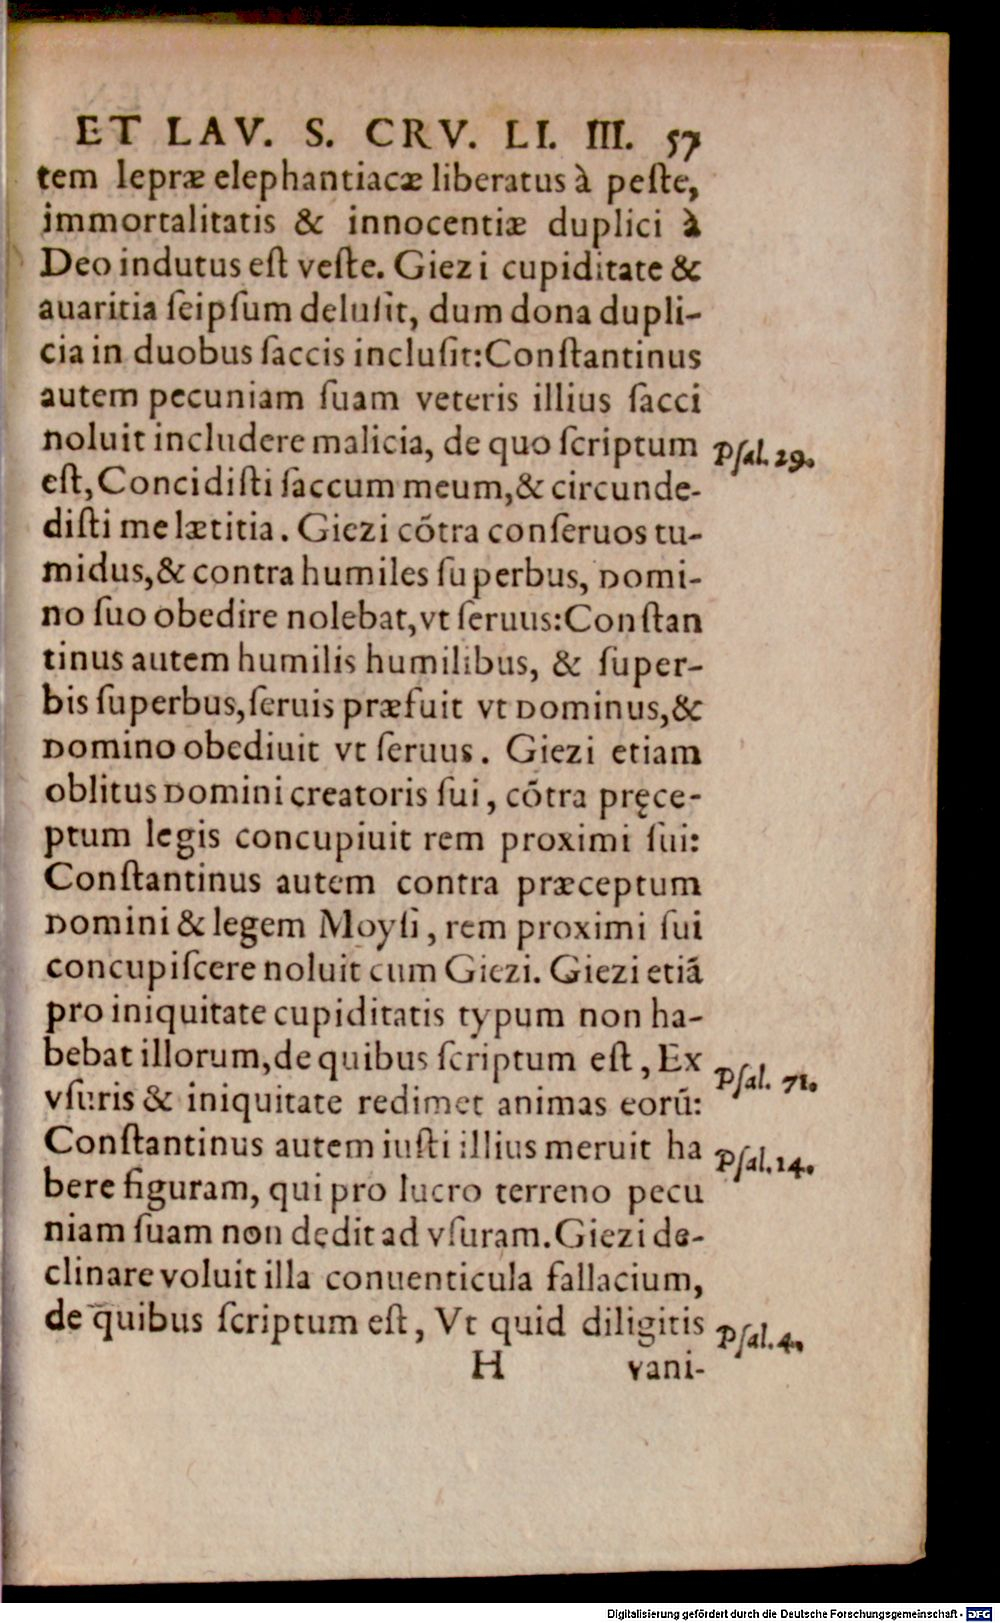 ET LAV. S. CRV. LI. III. 57
tem lepræ elephantiacæ liberatus à peſte,
immortalitatis & innocentiæ duplici à
Deo indutus eſt veſte. Giezi cupiditate &
auaritia ſeipſum deluſit, dum dona dupli-
cia in duobus ſaccis incluſit: Conſtantinus
autem pecuniam ſuam veteris illius ſacci
noluit includere malicia, de quo ſcriptum
Pſal. 29.
eſt, Concidiſti ſaccum meum, & circunde-
diſti me lætitia. Giezi cõtra conſeruos tu-
midus, & contra humiles ſuperbus, Domi-
no ſuo obedire nolebat, vt ſeruus: Conſtan
tinus autem humilis humilibus, & ſuper-
bis ſuperbus, ſeruis præfuit vt Dominus, &
Domino obediuit vt ſeruus. Giezi etiam
oblitus Domini creatoris ſui, cõtra pręce-
ptum legis concupiuit rem proximi ſui:
Conſtantinus autem contra præceptum
Domini & legem Moyſi, rem proximi ſui
concupiſcere noluit cum Giezi. Giezi etiã
pro iniquitate cupiditatis typum non ha-
bebat illorum, de quibus ſcriptum eſt, Ex
Pſal. 71.
vſuris & iniquitate redimet animas eorũ:
Conſtantinus autem iuſti illius meruit ha
Pſal. 14.
bere figuram, qui pro lucro terreno pecu
niam ſuam non dedit ad vſuram. Giezi de-
clinare voluit illa conuenticula fallacium,
de quibus ſcriptum eſt, Vt quid diligitis
Pſal. 4.
H vani-
Digitalisierung gefördert durch die Deutsche Forschungsgemeinschaft - DFG